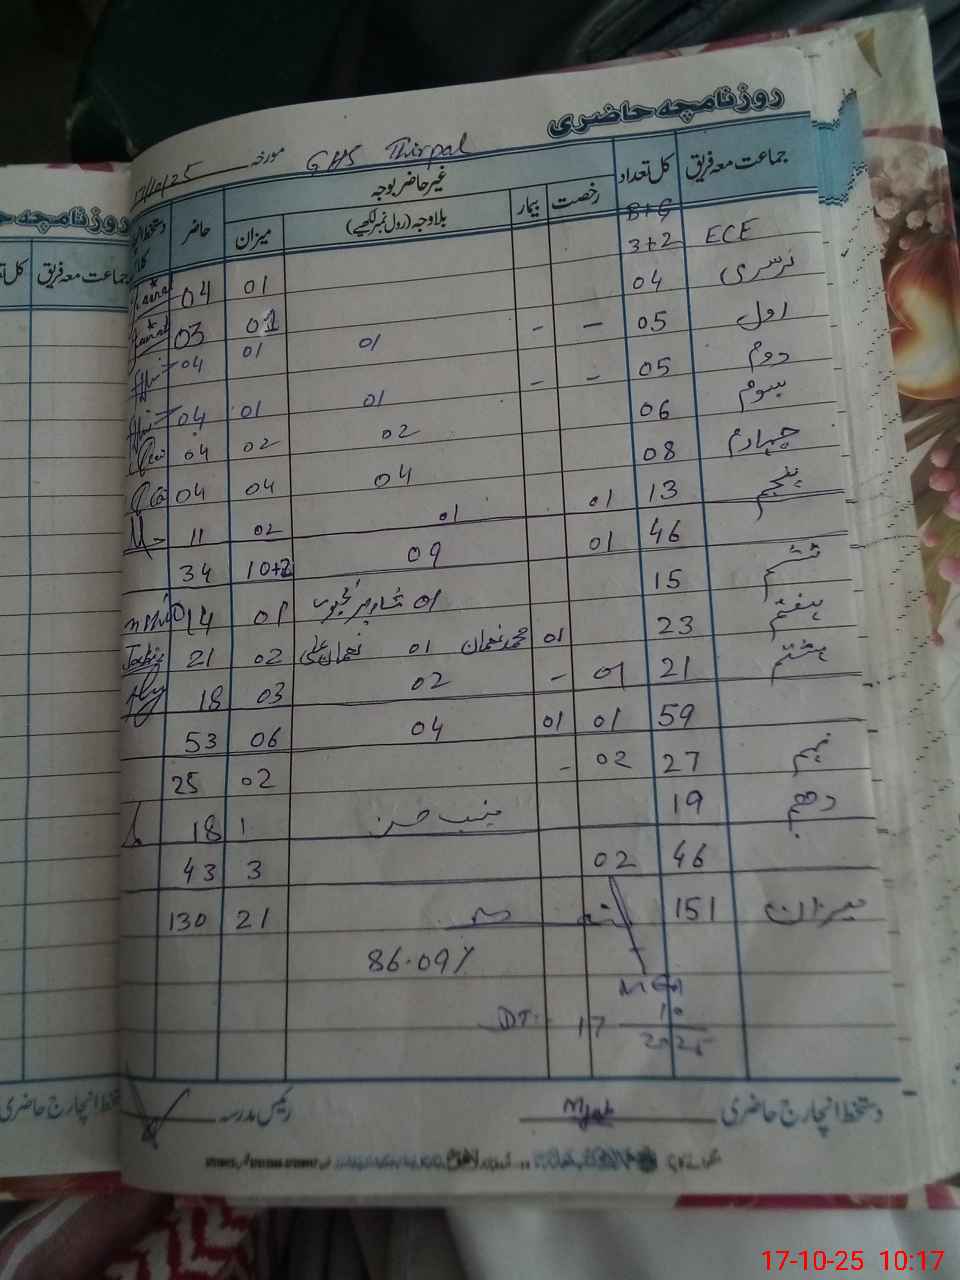 روزنامچہ حاضری
GHS Thirpal مورخہ 17/10/25
جماعت معہ فریق کل تعداد غیر حاضر بوجہ حاضر
رخصت بیمار بلاوجہ (رول نمبر لکھیے) میزان
B+G
ECE 3+2 01 04
نرسری 04 01 03
اول 05 - - 01 01 04
دوم 05 - - 01 01 04
سوم 06 02 02 04
چہارم 08 04 04 04
پنجم 13 01 01 02 11
46 01 09 10+2 34
ششم 15 01 01 14
ہفتم 23 01 محمد نعمان 01 نعمان علی 02 21
ہشتم 21 01 - 02 03 18
59 01 01 04 06 53
نہم 27 02 - 02 25
دہم 19 منیب حسن 1 18
46 02 3 43
میزان 151 21 130
86.09%
DT:- 17
10
2025
دستخط انچارج حاضری رئیس مدرسہ
روزنامچہ حا
جماعت معہ فریق کل
دستخط انچارج حاضری
17-10-25 10:17